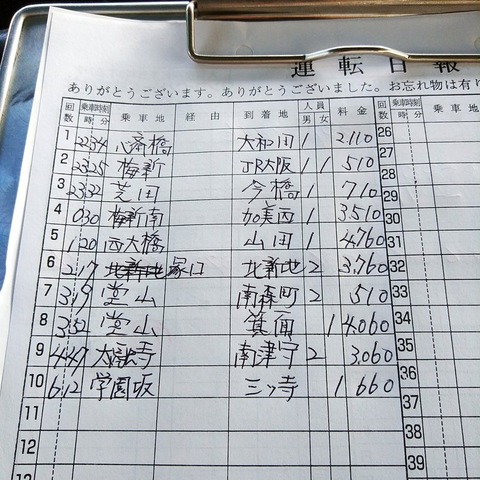 運転日報
ありがとうございます。ありがとうございました。お忘れ物は有り
回数 乗車時刻 時 分 乗車地 経由 到着地 人員 男 女 料金 回数 乗車時刻 時 分 乗車地
1 22 34 心斎橋 大和田 1 2,110 26
2 23 25 梅新 JR大阪 1 1 510 27
3 23 32 芝田 今橋 1 710 28
4 0 30 梅新南 加美西 1 3,510 29
5 1 20 西大橋 山田 1 4,760 31
6 2 17 塚口 北新地 2 3,760 32
7 3 19 堂山 南森町 2 510 33
8 3 52 堂山 箕面 1 4,060 34
9 4 47 太融寺 南津守 2 3,060 35
10 6 12 学園坂 三ッ寺 1 660 36
11 37
12 38
13 39